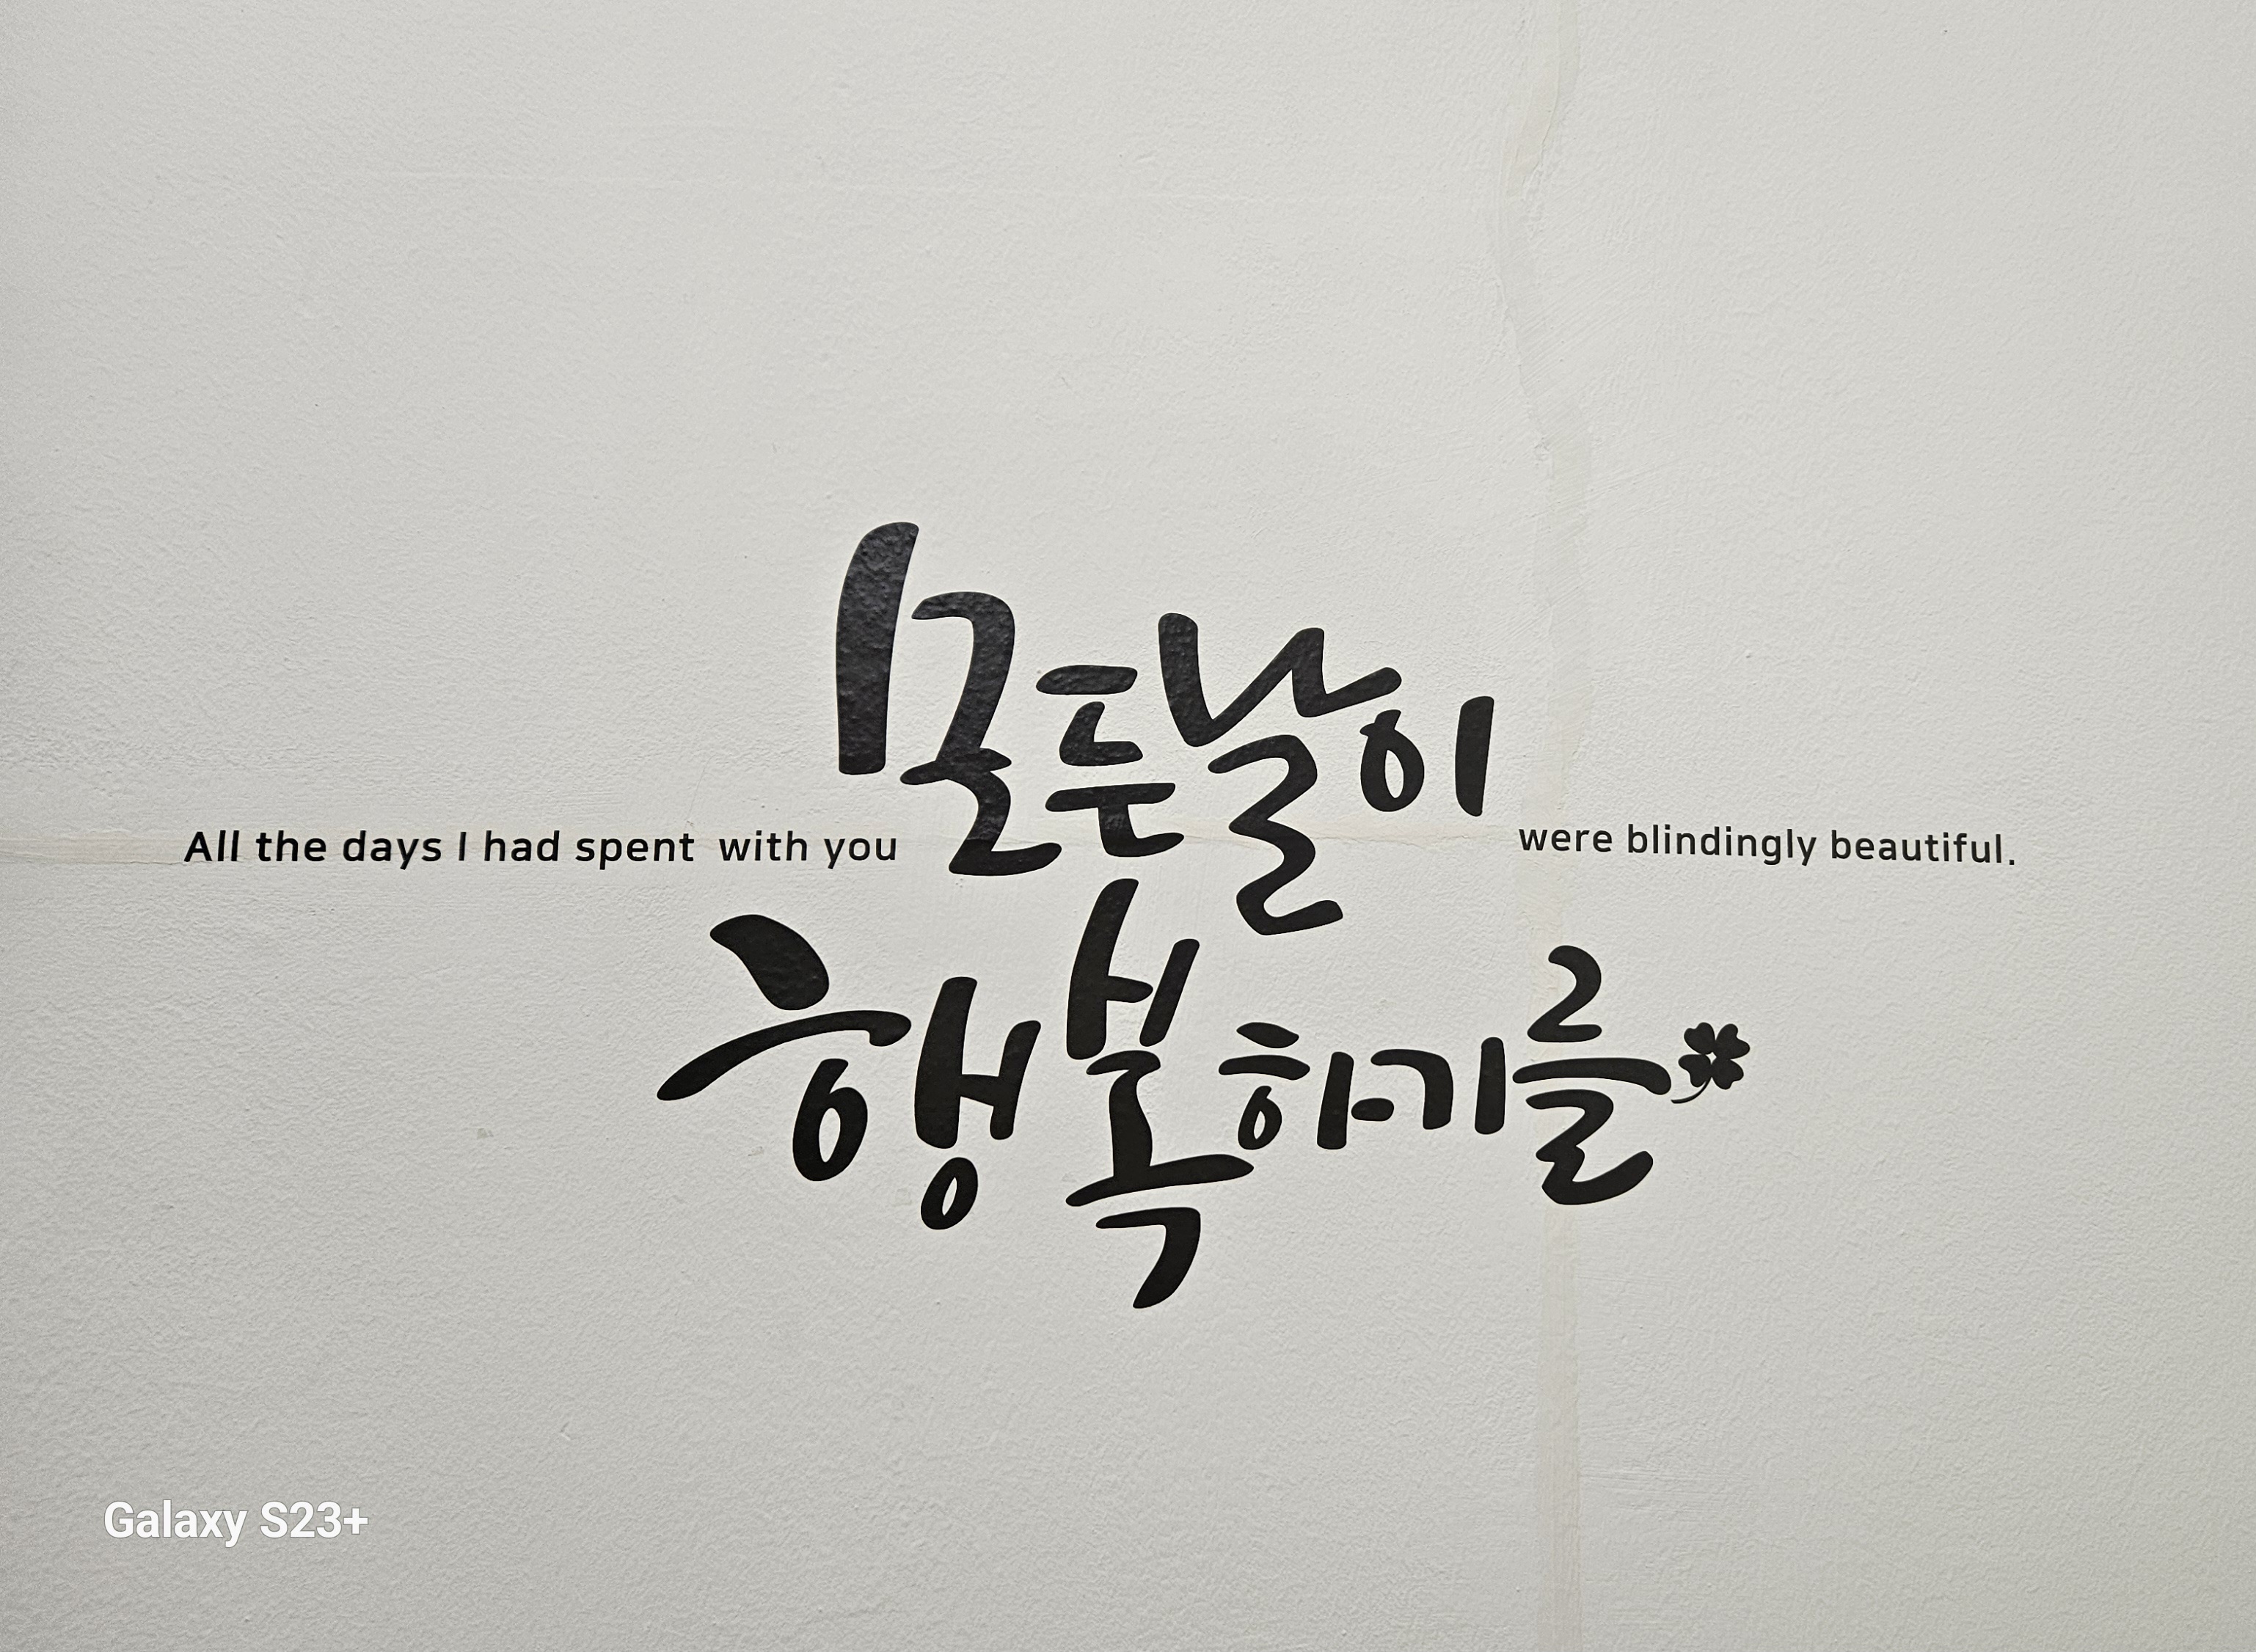 모든날이
All the days I had spent with you
were blindingly beautiful.
행복하기를
Galaxy S23+